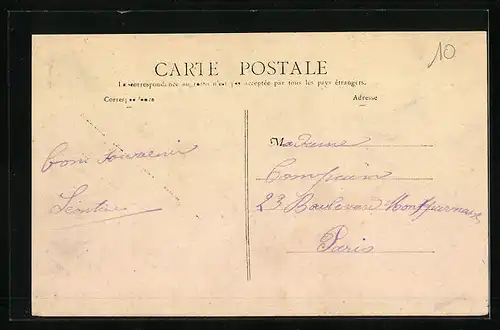 10
CARTE POSTALE
La correspondance au recto n'est pas acceptée par tous les pays étrangers.
Correspondance
Adresse
Madame
bon souvenir
Compain
Léontine
23 Boulevard Montparnasse
Paris